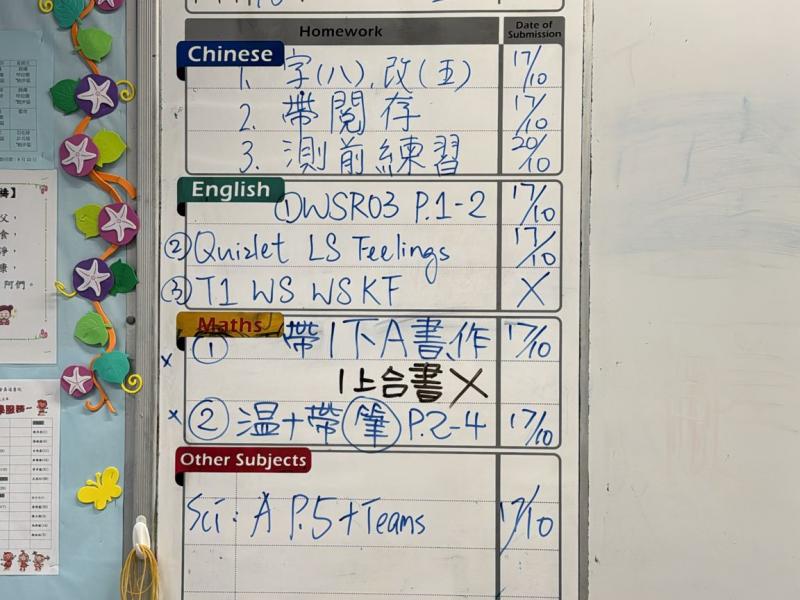 Homework
Date of Submission
Chinese
1. 字(八), 改(五) 17/10
2. 帶閱存 17/10
3. 測前練習 20/10
English
① WSR03 P.1-2 17/10
② Quizlet LS Feelings 17/10
③ T1 WS WSKF X
Maths
x ① 帶1下A書,作 17/10
1上合書X
x ② 温+帶筆 P.2-4 17/10
Other Subjects
Sci: A P.5 + Teams 17/10
父，
食，
淨，
康，
阿們。